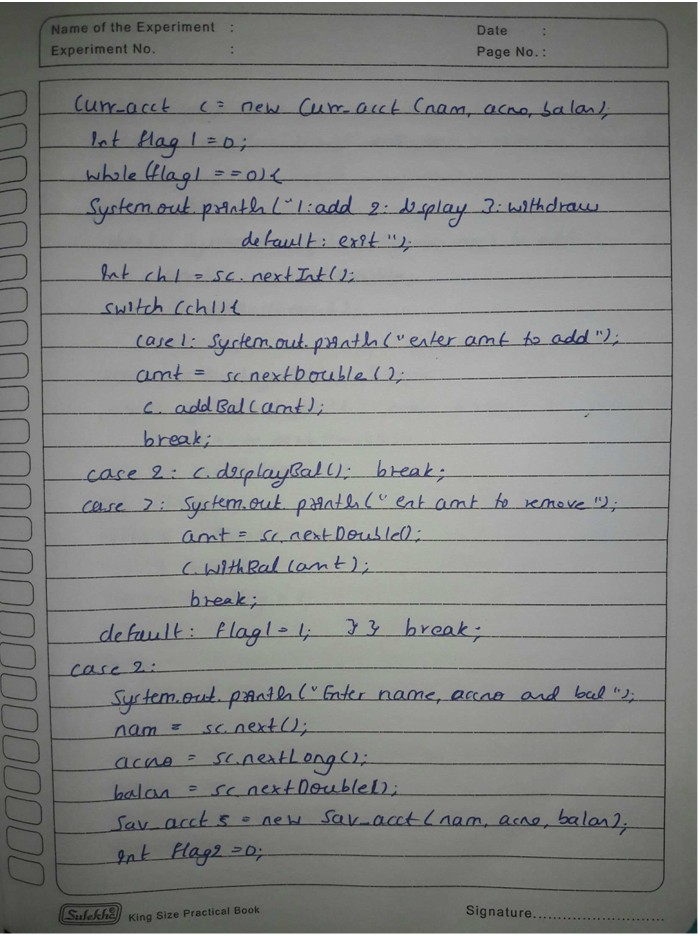 Name of the Experiment :
Date :
Experiment No. :
Page No. :
Curr_acct c = new Curr_acct (nam, acno, balan);
int flag1 = 0;
while (flag1 == 0) {
System.out.println ("1:add 2: display 3: withdraw
default: exit");
int ch1 = sc.nextInt();
switch (ch1) {
case 1: System.out.println ("enter amt to add");
amt = sc.nextDouble ();
c. addBal (amt);
break;
case 2: c.displayBal(); break;
case 3: System.out println (" ent amt to remove");
amt = sc.nextDouble();
c.withBal (amt);
break;
default: flag1 = 1; } } break;
case 2:
System.out.println ("Enter name, accno and bal");
nam = sc.next();
acno = sc.nextLong();
balan = sc.nextDouble();
Sav_acct s = new Sav_acct (nam, acno, balan);
int flag2 = 0;
Sulekha King Size Practical Book
Signature............................